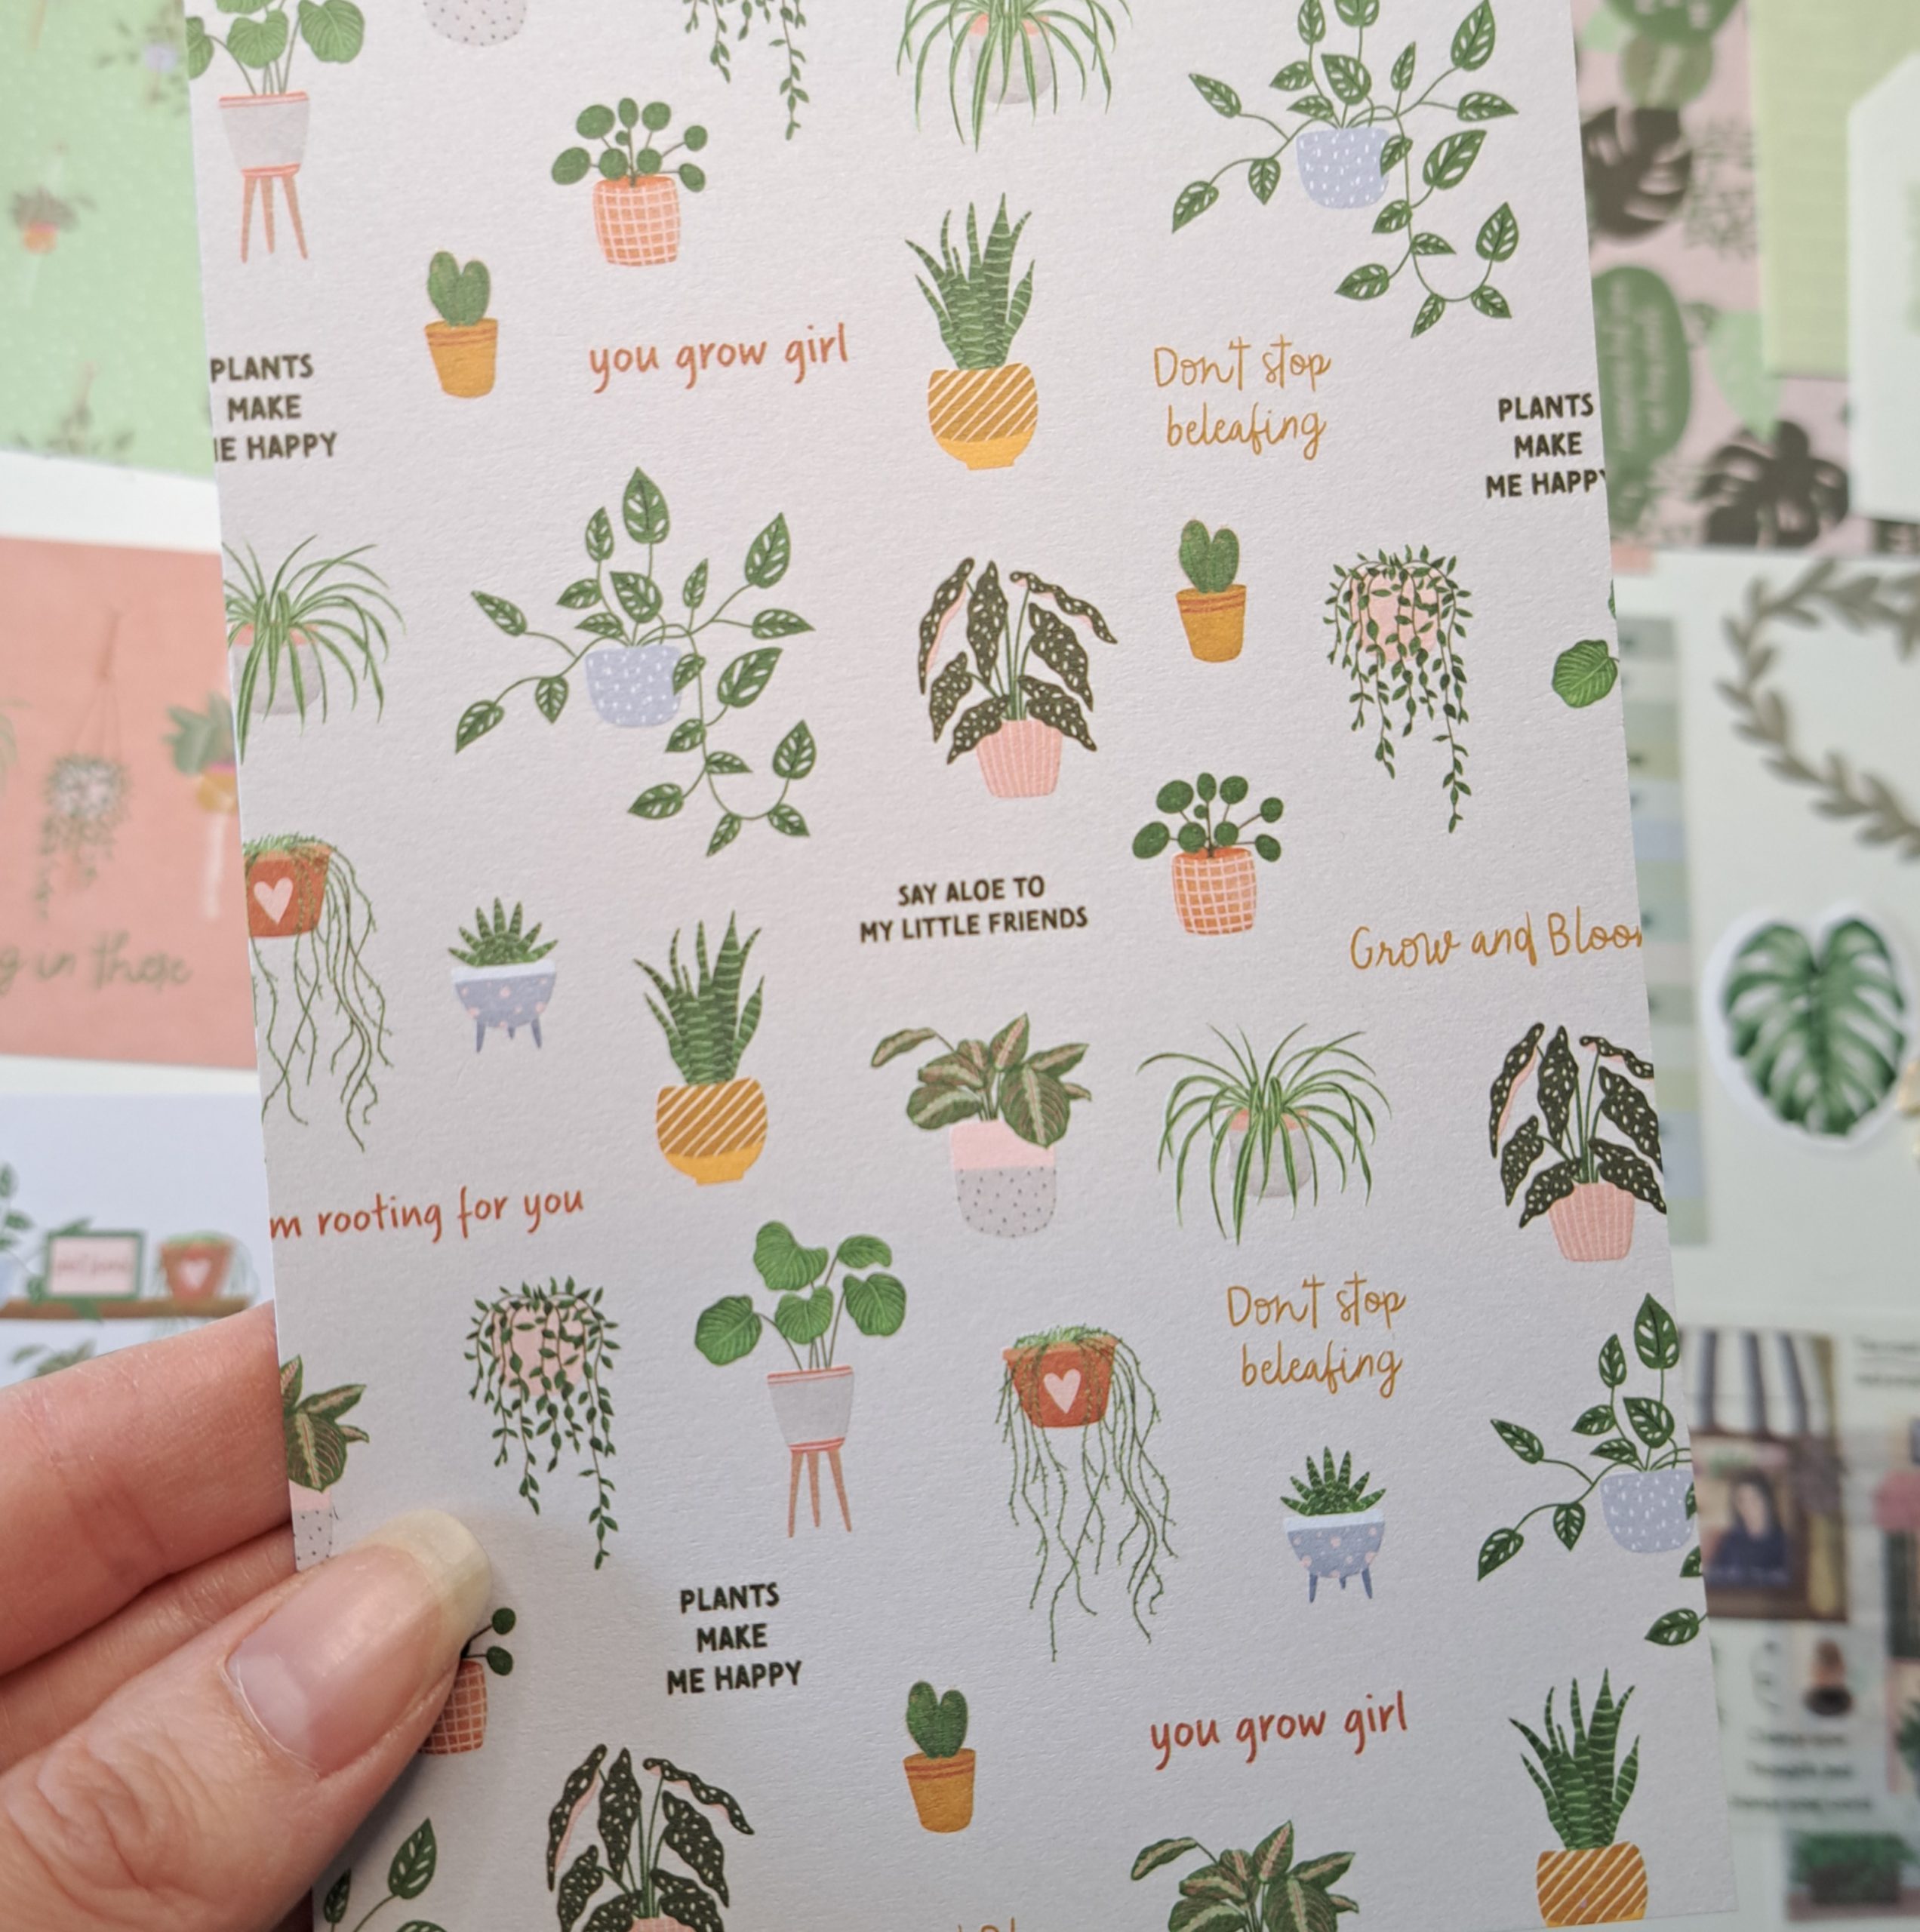 PLANTS
MAKE
ME HAPPY
you grow girl
Don't stop
beleafing
PLANTS
MAKE
ME HAPPY
SAY ALOE TO
MY LITTLE FRIENDS
Grow and Bloo
m rooting for you
Don't stop
beleafing
PLANTS
MAKE
ME HAPPY
you grow girl
g in there